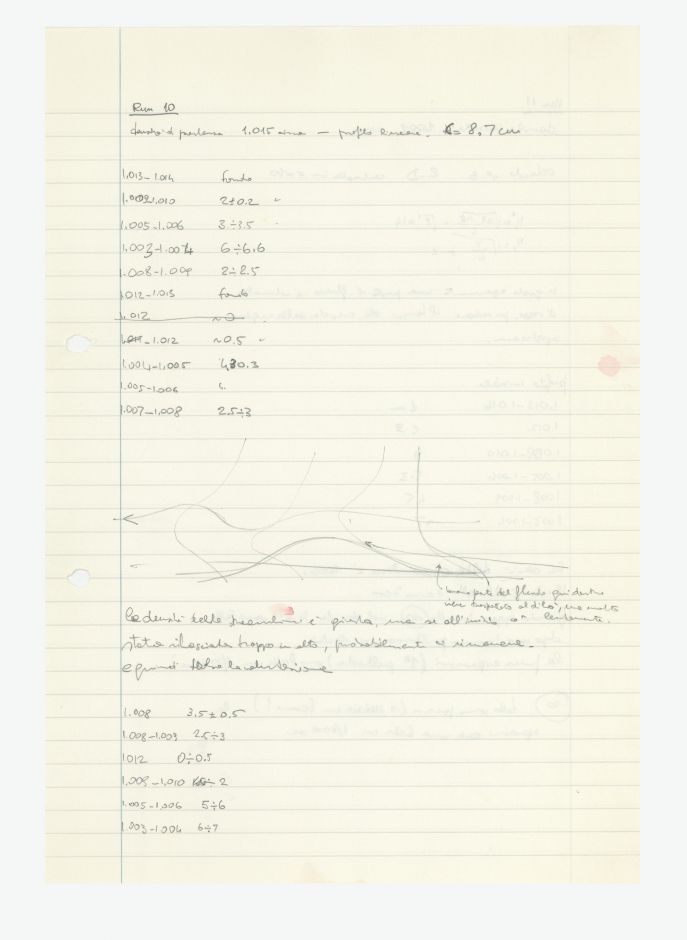 Run 10
densità di partenza 1.015 — profilo lineare. = 8.7 cm
1.013-1.014 fondo
1.010 2±0.2 "
1.005-1.006 3÷3.5
1.003-1.004 6÷6.6
1.008-1.009 2÷2.5
1.012-1.013 fondo
1.012
-1.012 ~0.5 "
1.004-1.005 0.3
1.005-1.006 "
1.007-1.008 2.5÷3
buona parte del fluido qui dentro
viene al di là, ma molto
lentamente.
La densità delle è giusta, ma se all'inizio è
stata rilasciata troppo in alto, probabilmente vi rimane.
e quindi la
1.008 3.5±0.5
1.008-1.009 2.5÷3
1.012 0÷0.5
1.009-1.010 2
1.005-1.006 5÷6
1.003-1.004 6÷7